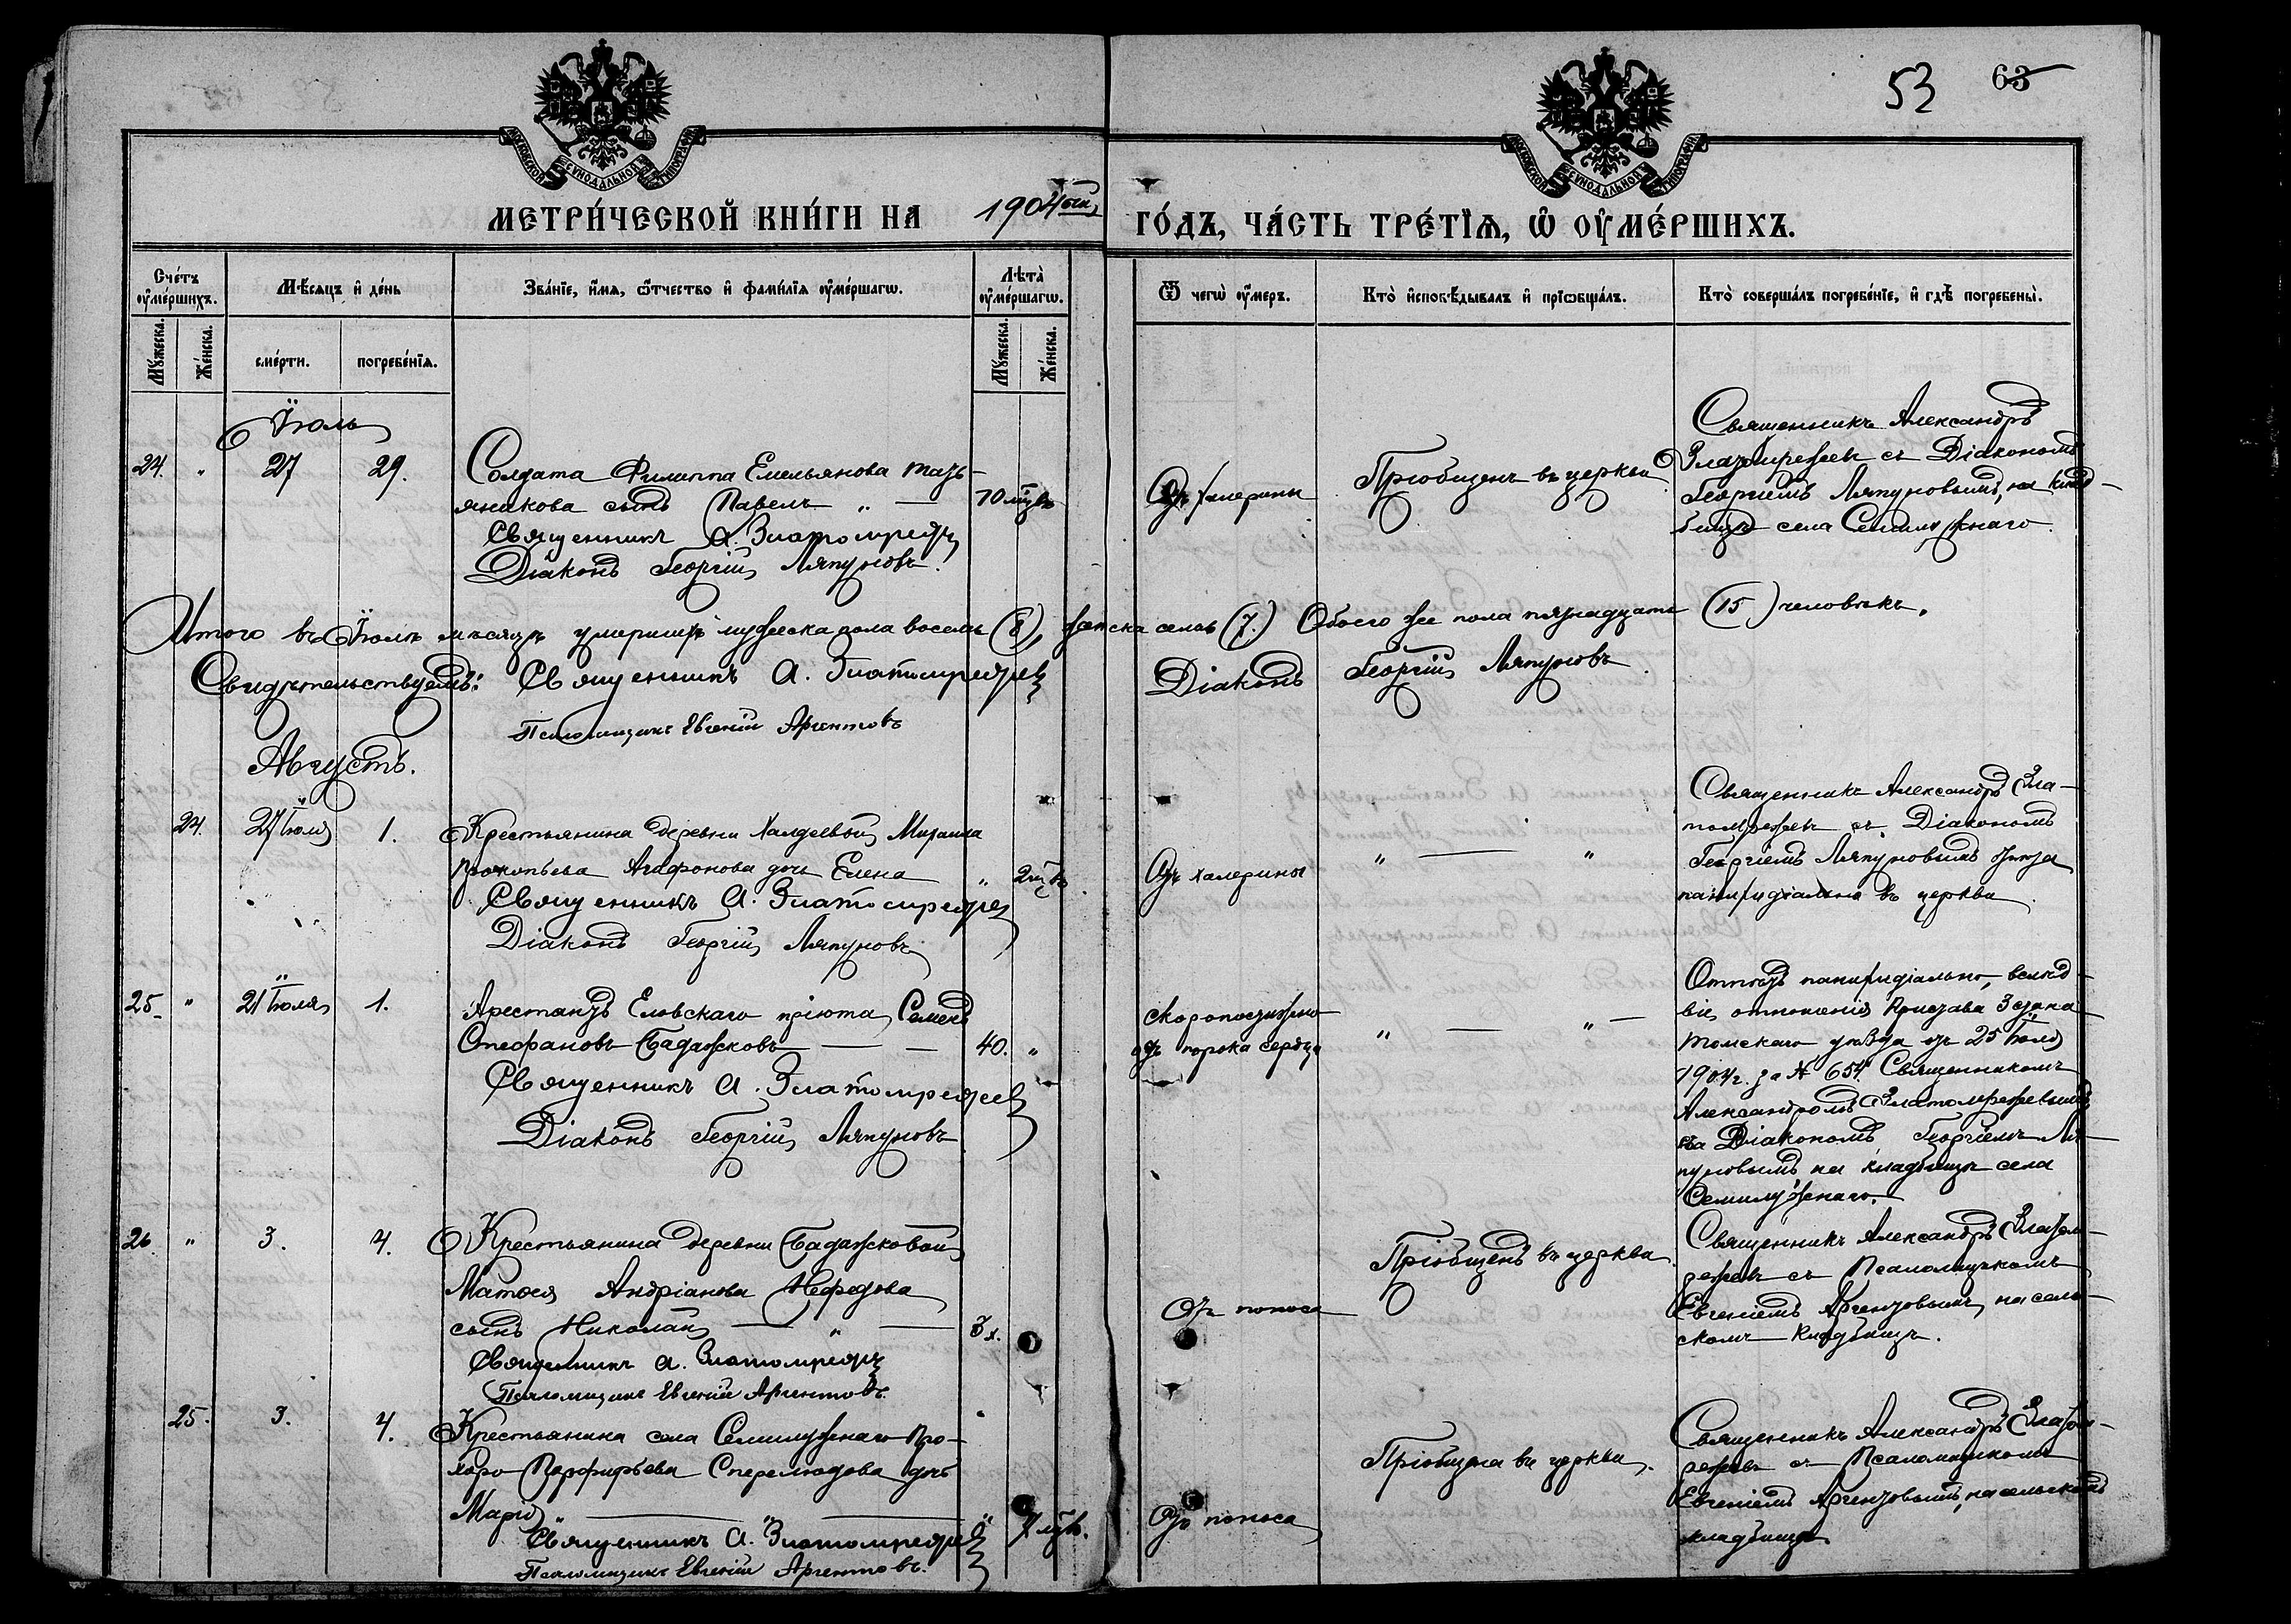 53 63
МОСКОВСКОЙ СѴНОДАЛЬНОЙ ТИПОГРАФІИ
МОСКОВСКОЙ СѴНОДАЛЬНОЙ ТИПОГРАФІИ
МЕТРИ́ЧЕСКОЙ КНИ́ГИ НА 1904ый ГО́ДЪ, ЧА́СТЬ ТРЕ́ТІѦ, Ѡ ОУМЕ́РШИХЪ.
Сче́тъ оуме́ршихъ.
Мѣ́сяцъ и де́нь
Зва́ніе, и́мя, ѻ́тчество и фами́лія оуме́ршагѡ.
Лѣта̀ оуме́ршагѡ.
Ѿ чегѡ̀ оу́меръ.
Кто̀ исповѣ́дывалъ и пріѡбща́лъ.
Кто̀ соверша́лъ погребе́ніе, и гдѣ̀ погребены̀.
Му́жеска. Же́нска. сме́рти. погребе́нія. Му́жеска. Же́нска.
Іюль
24. " 27 29.
Солдата Филиппа Емельянова
сынъ Павелъ " — 10 мцвъ
Священникъ А. Златомрежевъ
Діаконъ Георгій Ляпуновъ.
Отъ халерины
Пріобщенъ въ церкви
Священникъ Александръ
Златомрежевъ съ Діакономъ
Георгіемъ Ляпуновымъ, на клад-
бищѣ села Семилужнаго.
Итого въ Іюлѣ мѣсяцѣ умершихъ мужеска пола восемь (8), женска семь (7.) Обоего же пола пятнадцать (15) человѣкъ.
Свидѣтельствуемъ: Священникъ А. Златомрежевъ Діаконъ Георгій Ляпуновъ
Псаломщикъ Евгеній Аргентовъ
Августъ.
24. 27 Іюля 1.
Крестьянина деревни Халдеевой Михаила
Прокопьева Агафонова дочь Елена " 2 мцвъ
Священникъ А. Златомрежевъ
Діаконъ Георгій Ляпуновъ
Отъ халерины
" — "
Священникъ Александръ Зла-
томрежевъ съ Діакономъ
Георгіемъ Ляпуновымъ отпѣта
панихидіально въ церкви.
25. " 21 Іюля 1.
Арестантъ Еловскаго пріюта Семенъ
Стефановъ Бадажковъ — — 40. "
Священникъ А. Златомрежевъ
Діаконъ Георгій Ляпуновъ
Скоропостижно
отъ порока сердца
" — " —
Отпѣтъ панихидіально, вслѣд-
віе отношенія Пристава 3 стана
Томскаго уѣзда отъ 25 Іюля
1904 г. за № 654. Священникомъ
Александромъ Златомрежевымъ
Діакономъ Георгіемъ Ля-
пуновымъ на кладбищѣ села
Семилужнаго.
26. " 3. 4.
Крестьянина деревни Бадажковой
Матѳея Андріанова Нефедова
сынъ Николай — " — 3 л.
Священникъ А. Златомрежевъ
Псаломщикъ Евгеній Аргентовъ.
Отъ поноса
Пріобщенъ въ церкви.
Священникъ Александръ Златом-
режевъ съ Псаломщикомъ
Евгеніемъ Аргентовымъ, на сель-
скомъ кладбищѣ.
25. 3. 4.
Крестьянина села Семилужнаго Про-
хора Порфирьева Сперелюдова дочь
Марія " — " — " 7 мцвъ.
Священникъ А. Златомрежевъ
Псаломщикъ Евгеній Аргентовъ.
Отъ поноса
Пріобщена въ церкви.
Священникъ Александръ Златом-
режевъ съ Псаломщикомъ
Евгеніемъ Аргентовымъ, на сельскомъ
кладбищѣ